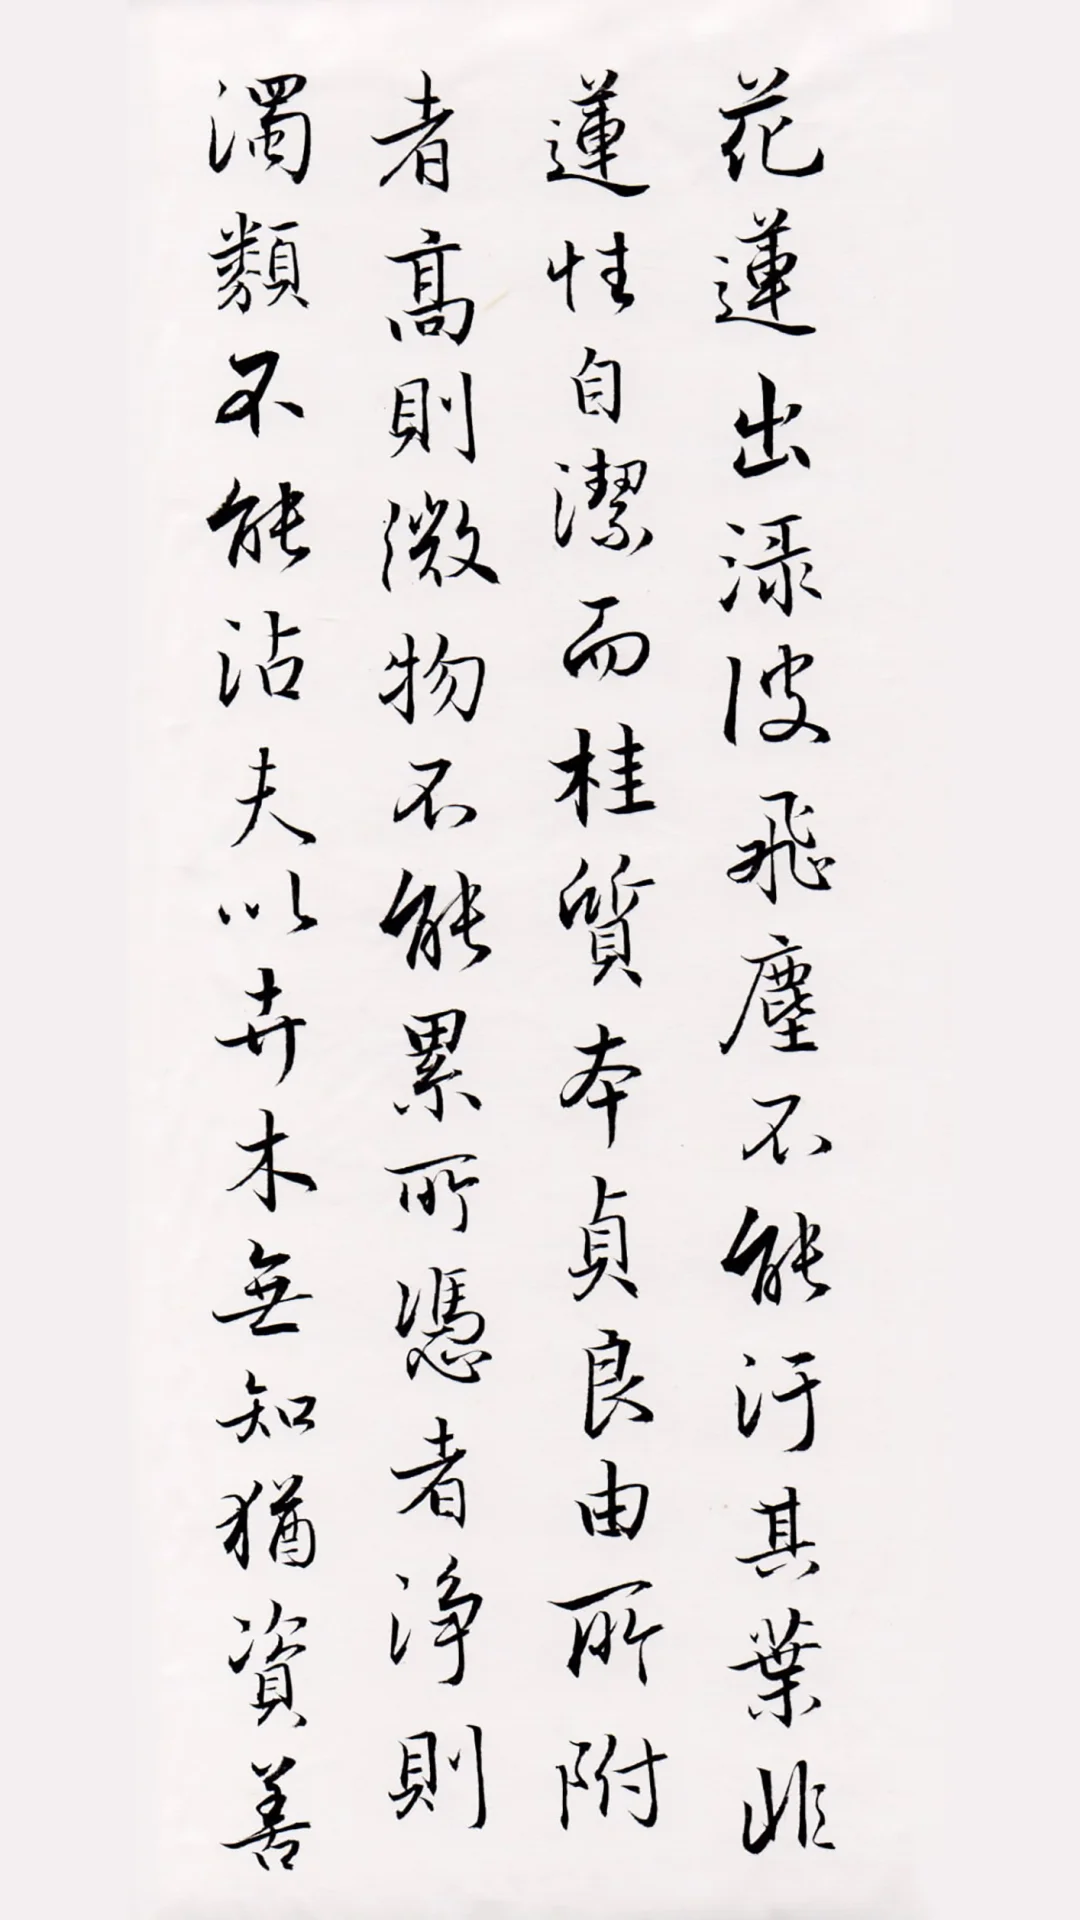 花蓮出渌波飛塵不能汙其葉非
蓮性自潔而桂質本貞良由所附
者高則微物不能累所憑者淨則
濁類不能沾夫以卉木無知猶資善